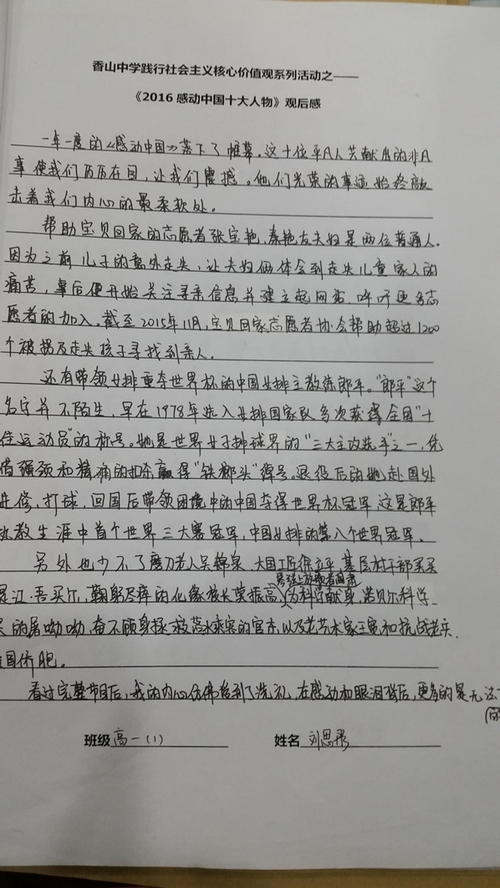 香山中学践行社会主义核心价值观系列活动之——
《2016 感动中国十大人物》观后感
一年一度的《感动中国》落下了帷幕。这十位平凡人共献出的非凡
事使我们历历在目，让我们震撼。他们光荣的事迹始终敲
击着我们内心的最柔软处。
帮助宝贝回家的志愿者张宝艳，秦艳友夫妇是两位普通人。
因为之前儿子的意外走失，让夫妇俩体会到走失儿童家人的
痛苦，事后便开始关注寻亲信息并建立起网站，呼吁更多志
愿者的加入。截至2015年11月，宝贝回家志愿者协会帮助超过1200
个被拐及走失孩子寻找到亲人。
还有带领女排重夺世界杯的中国女排主教练郎平。“郎平”这个
名字并不陌生，早在1978年选入女排国家队多次获得全国“十
佳运动员”的称号。她是世界女子排球界的“三大主攻手”之一，凭
借强颈和精确的扣杀赢得“铁榔头”得号。退役后的她赴国外
进修，打球，回国后带领困境中的中国夺得世界杯冠军，这是郎平
执教生涯中首个世界三大赛冠军，中国女排的第八个世界冠军。
另外也少不了磨刀老人吴锦泉，大国工匠徐立平，基层村干部买买
提江·吾买尔，鞠躬尽瘁的化缘校长莫振高，为科学献身，诺贝尔科学
的屠呦呦，奋不顾身拯救落水乘客的官东，以及老艺术家王宽和抗战老兵
国侨胞。
看过完整节目后，我的内心仿佛受到了洗礼，在感动和眼泪背后，更多的是无法
班级 高一（1）
姓名 刘思彤